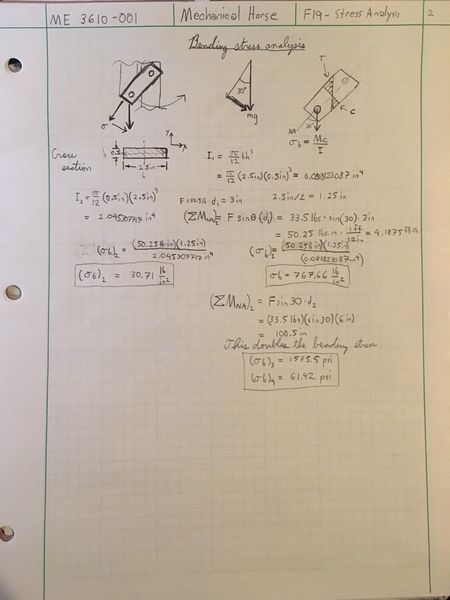 ME 3610-001 Mechanical Horse F19- Stress Analysis 2
Bending stress analysis
30°
mg
T
F
C
NA
30°
σ
σb = Mc/I
Cross section
0.5in
2.5in
Y
X
I₁ = π/12 bh³
= π/12 (2.5in)(0.5in)³ = 0.081823087 in⁴
I₂ = π/12 (0.5in)(2.5in)³
F=33.5lb d₁ = 3in 2.5in/2 = 1.25in
= 2.045307717 in⁴
(ΣM_NA)₁ = F sinθ (d₁) = 33.5lbs · sin(30) · 3in
= 50.25 lbs·in · 1ft/12in = 4.1875 ft·lb
(σb)₂ = (50.25lb·in)(1.25in)/2.045307717 in⁴
(σb)₁ = (50.25lb·in)(1.25in)/(0.081823087in⁴)
(σb)₂ = 30.71 lb/in²
σb = 767.66 lb/in²
(ΣM_NA)₂ = F sin30 · d₂
= (33.5 lbs)(sin30)(6in)
= 100.5 in
This doubles the bending stress
(σb)₃ = 1535.5 psi
(σb)₄ = 61.42 psi